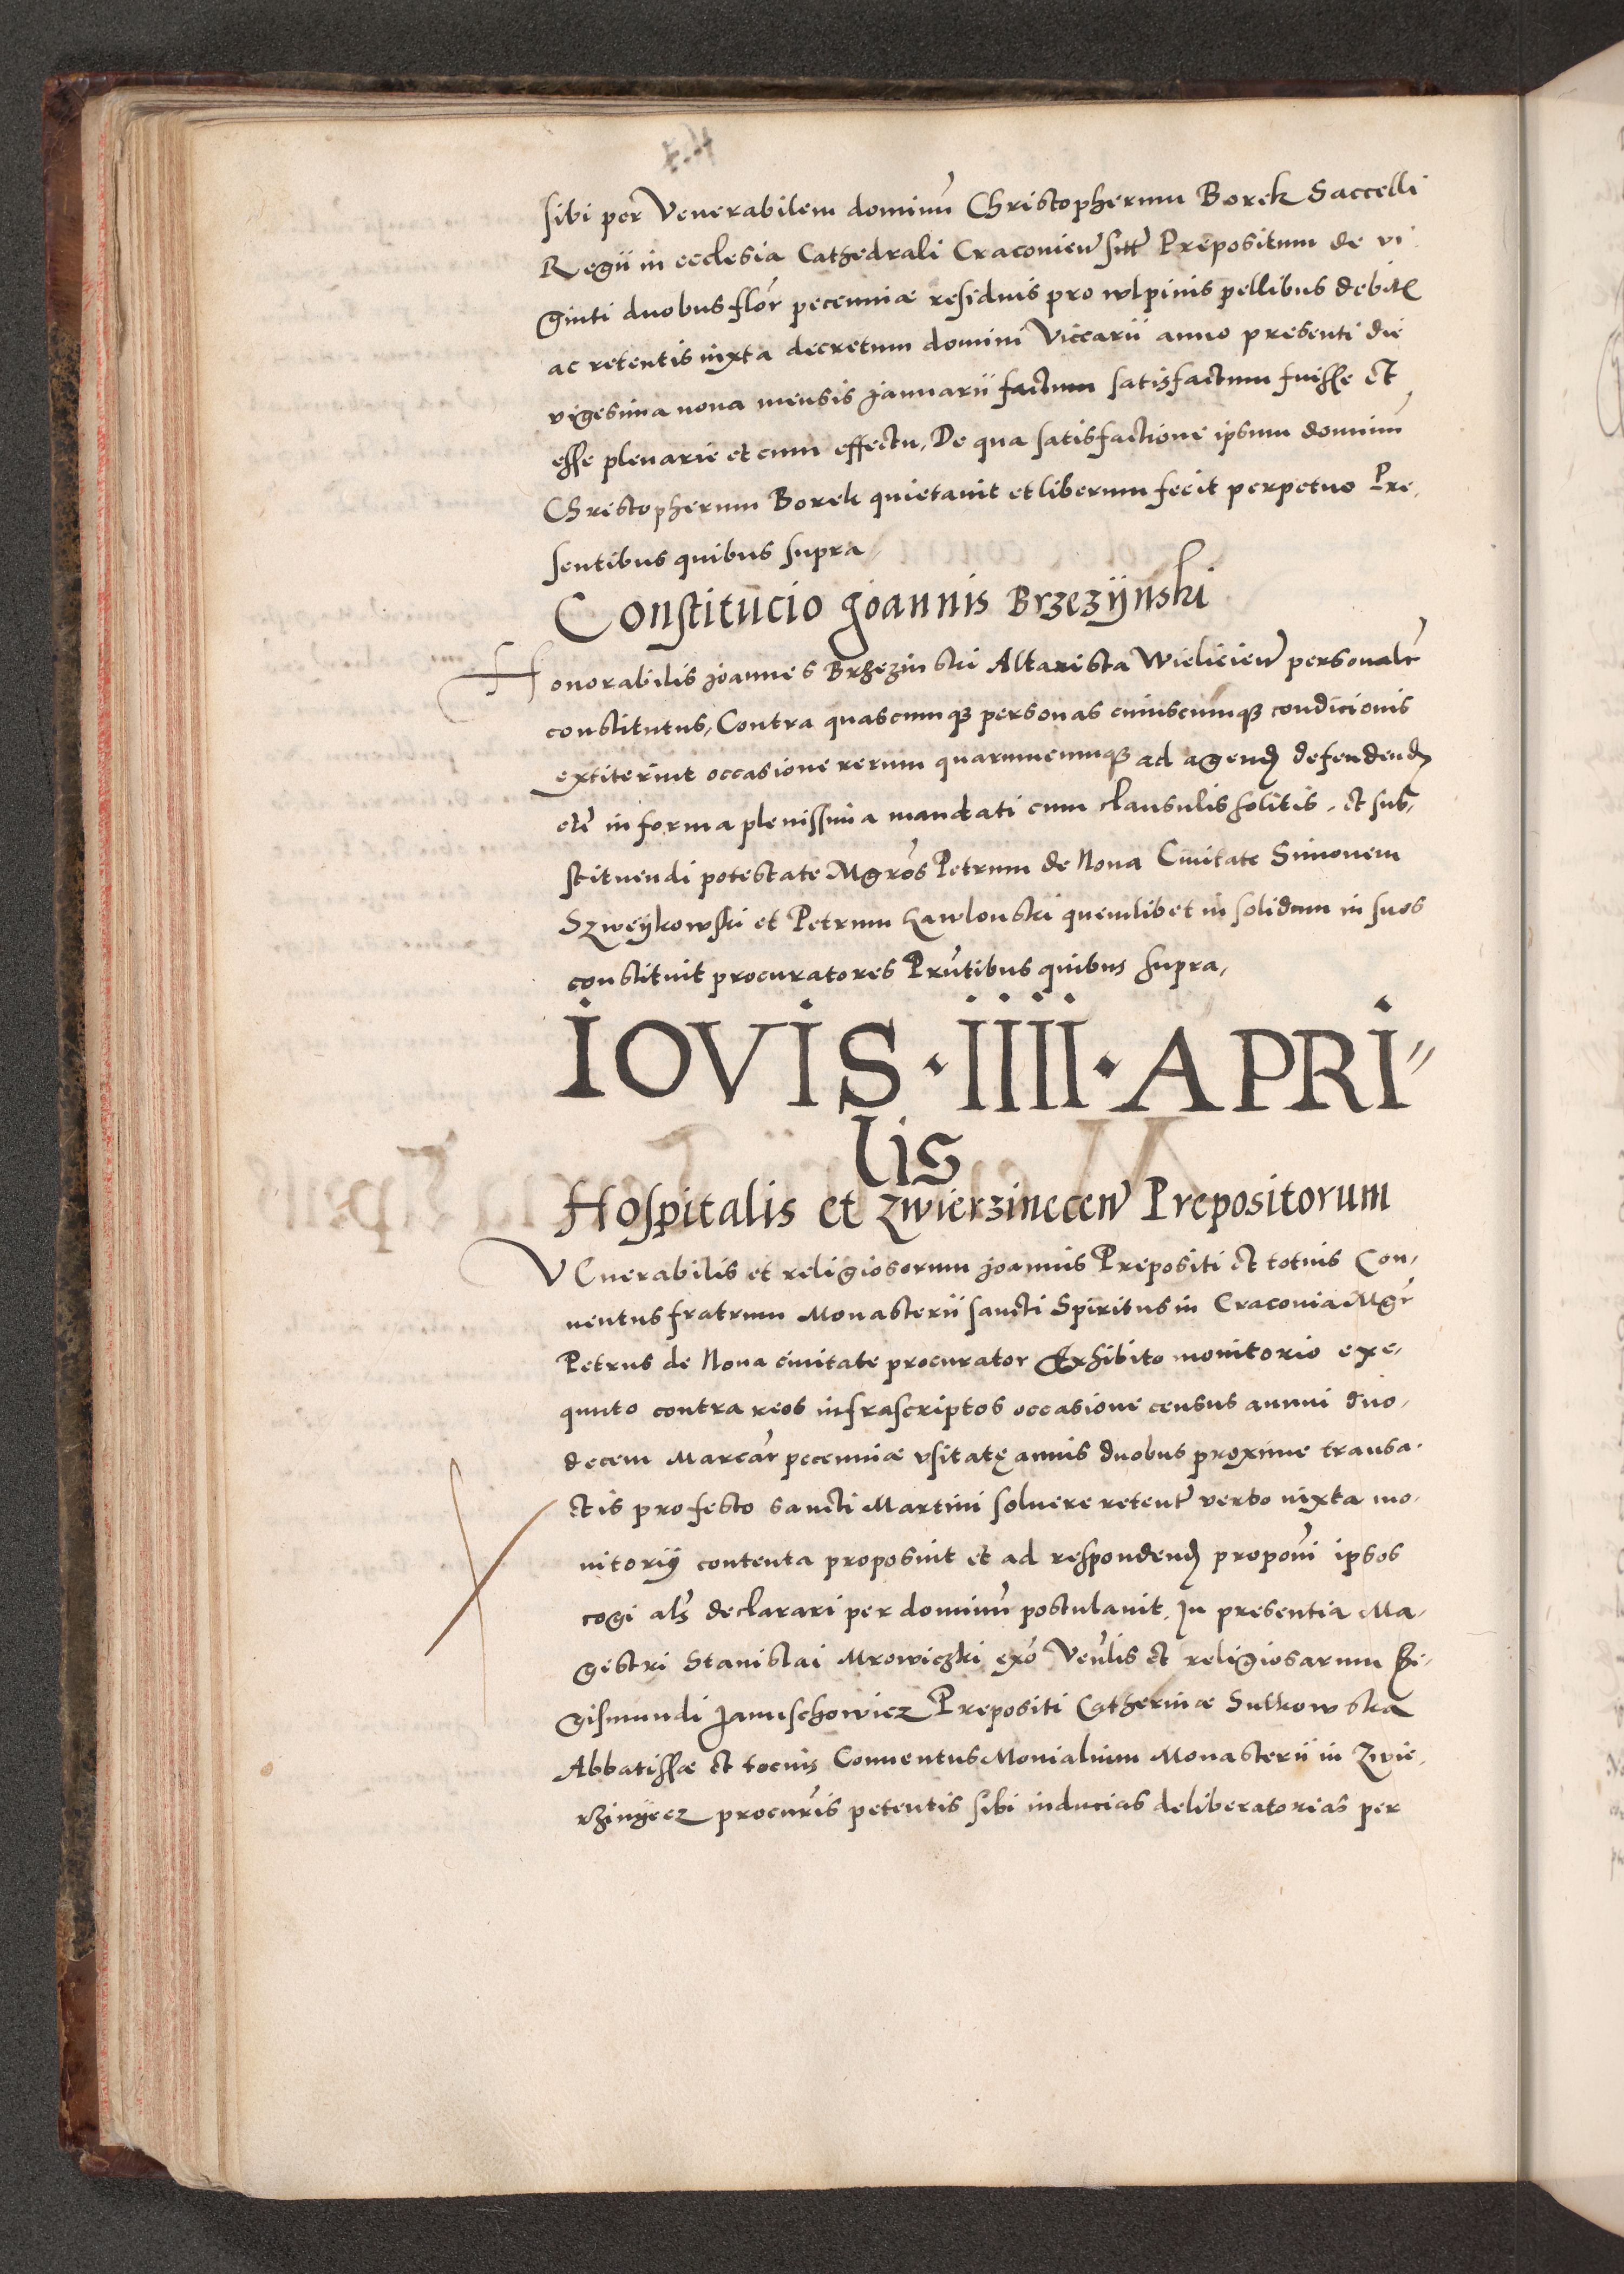 sibi per Venerabilem dominũ Christopherum Borek Saccelli
Regii in ecclesia Cathedrali Cracovien̄ Prepositum de vi
ginti duobus flor̃ pecenniæ residuis pro wlpinis pellibus debit
ac retentis iuxta decretum domini Viccarii anno presenti die
vigesima nona mensis Januarii factum satisfactum fuisse et
esse plenarie et cum effectu, De qua satisfactione ipsum dominũ
Christopherum Borek quietavit et liberum fecit perpetuo Pre,
sentibus quibus supra
Constitucio Joannis Brzezÿnski
Honorabilis Joannes Brzezinski Altarista Wielicień personalr̃
constitutus, Contra quascumq3 personas cuiuscumq3 condicionis
extiterint occasione rerum quarumcumq3 ad agend defendend
etc̃ in forma plenissima mandati cum clausulis solitis, et sub,
stituendi potestate Mgrõs Petrum de Nova Civitate Simonem
Szweykowski et Petrum Hawlonski quemlibet in solidum in suos
constituit procuratores Prñtibus quibus supra,
IOVIS · IIII · APRI〃
lis
Hospitalis et Zwierzinecen̄ Prepositorum
VEnerabilis et religiosorum Joannis Prepositi et totius Con,
ventus fratrum Monasterii sancti Spiritus in Cracovia Mgr̃
Petrus de Nova civitate procurator Exhibito monitorio exe,
quuto contra reos infrascriptos occasione census annui duo,
decem Marcar̃ pecenniæ vsitatę annis duobus proxime transa,
ctis pro festo sancti Martini soluere retent̃ verbo iuxta mo,
nitorÿ contenta proposuit et ad respondend propoñi ipsos
cogi alr̃s declarari per dominũ postulavit, In presentia Ma,
gistri Stanislai Mrowiczki exõ Veñlis et religiosarum Si,
gismundi Januschowicz Prepositi Catherinæ Sulkowska
Abbatissæ et tocius Conventus Monialium Monasterii in Zwie,
rzinÿecz procur̃is petentis sibi inducias deliberatorias per